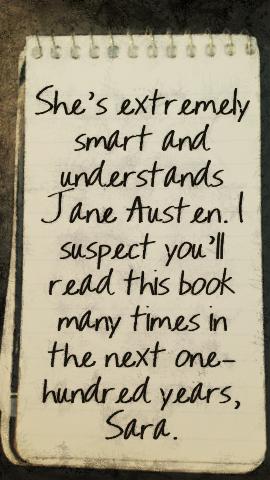 She's extremely
smart and
understands
Jane Austen. I
suspect you'll
read this book
many times in
the next one-
hundred years,
Sara.